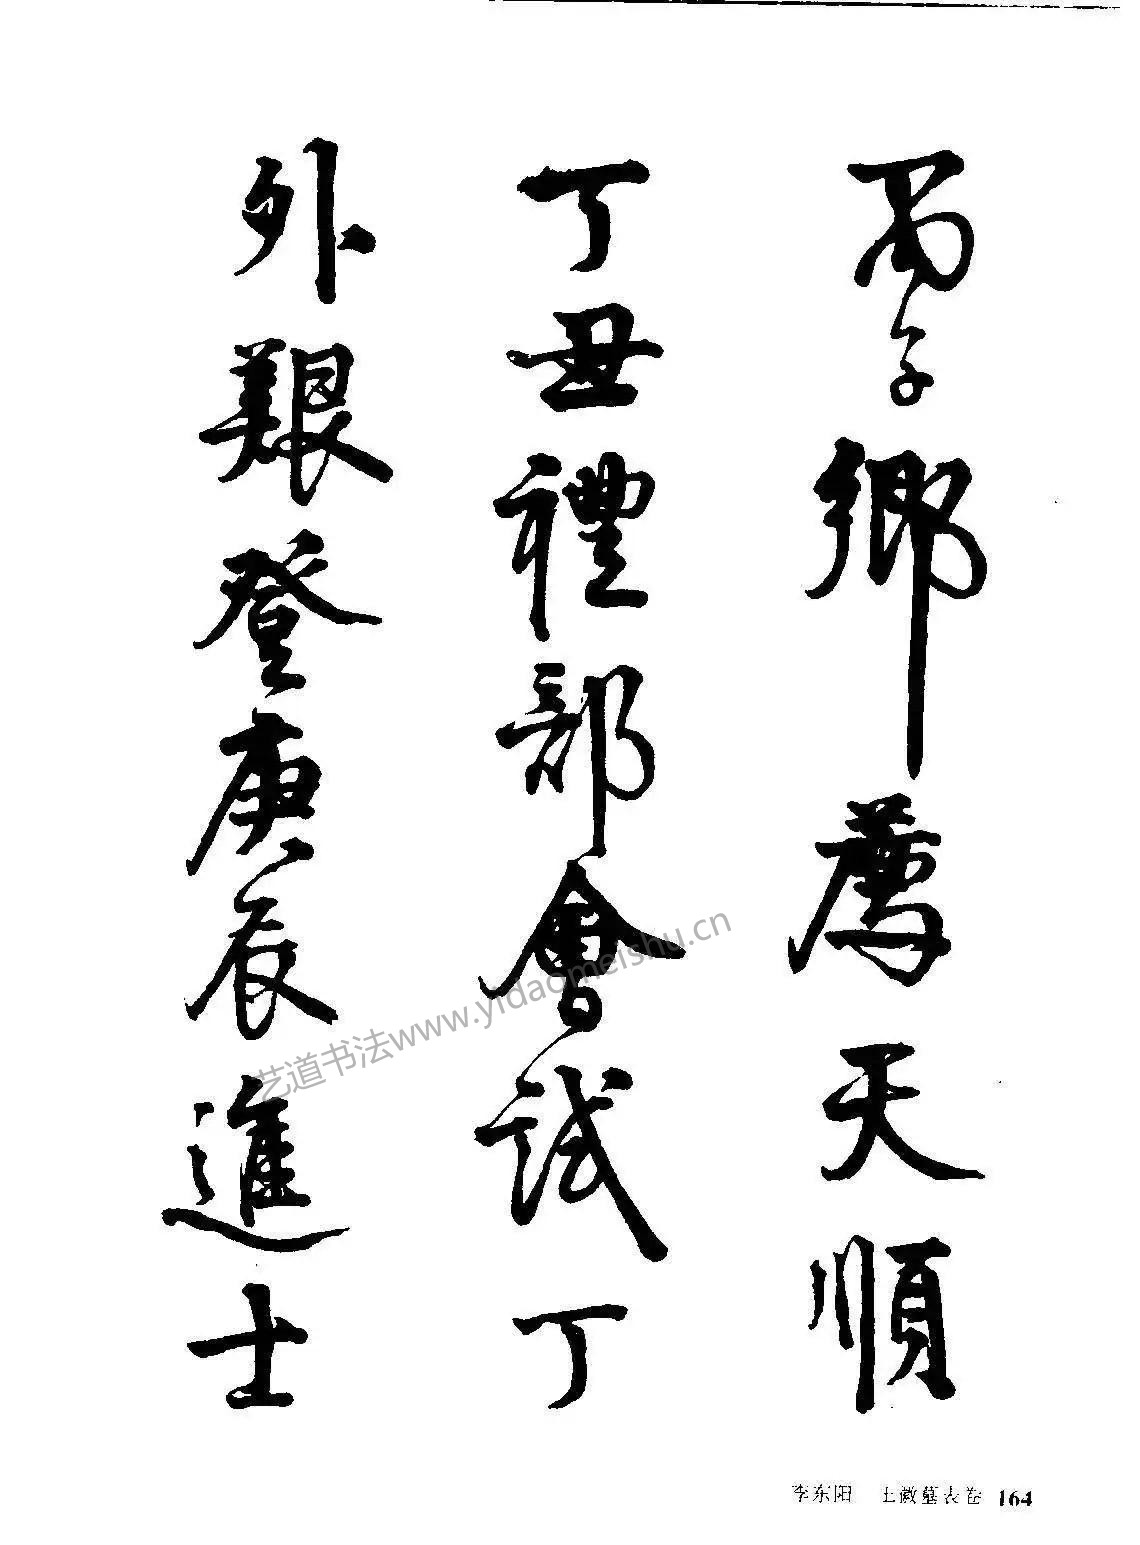 丙子鄉薦天順
丁丑禮部會試丁
外艱登庚辰進士
艺道书法www.yidaomeishu.cn
李东阳 王徽墓表卷 164